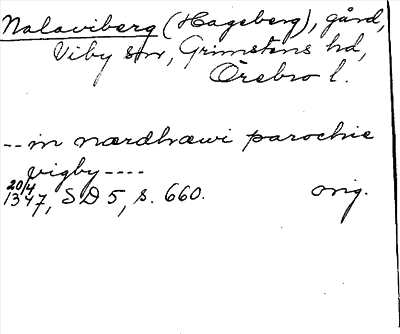 Nalaviberg (Hageberg), gård,
Viby sn, Grimstens hd,
Örebro l.
-- in nærdhæwi parochie
vigby ----
20/4
1347, SD 5, s. 660. orig.